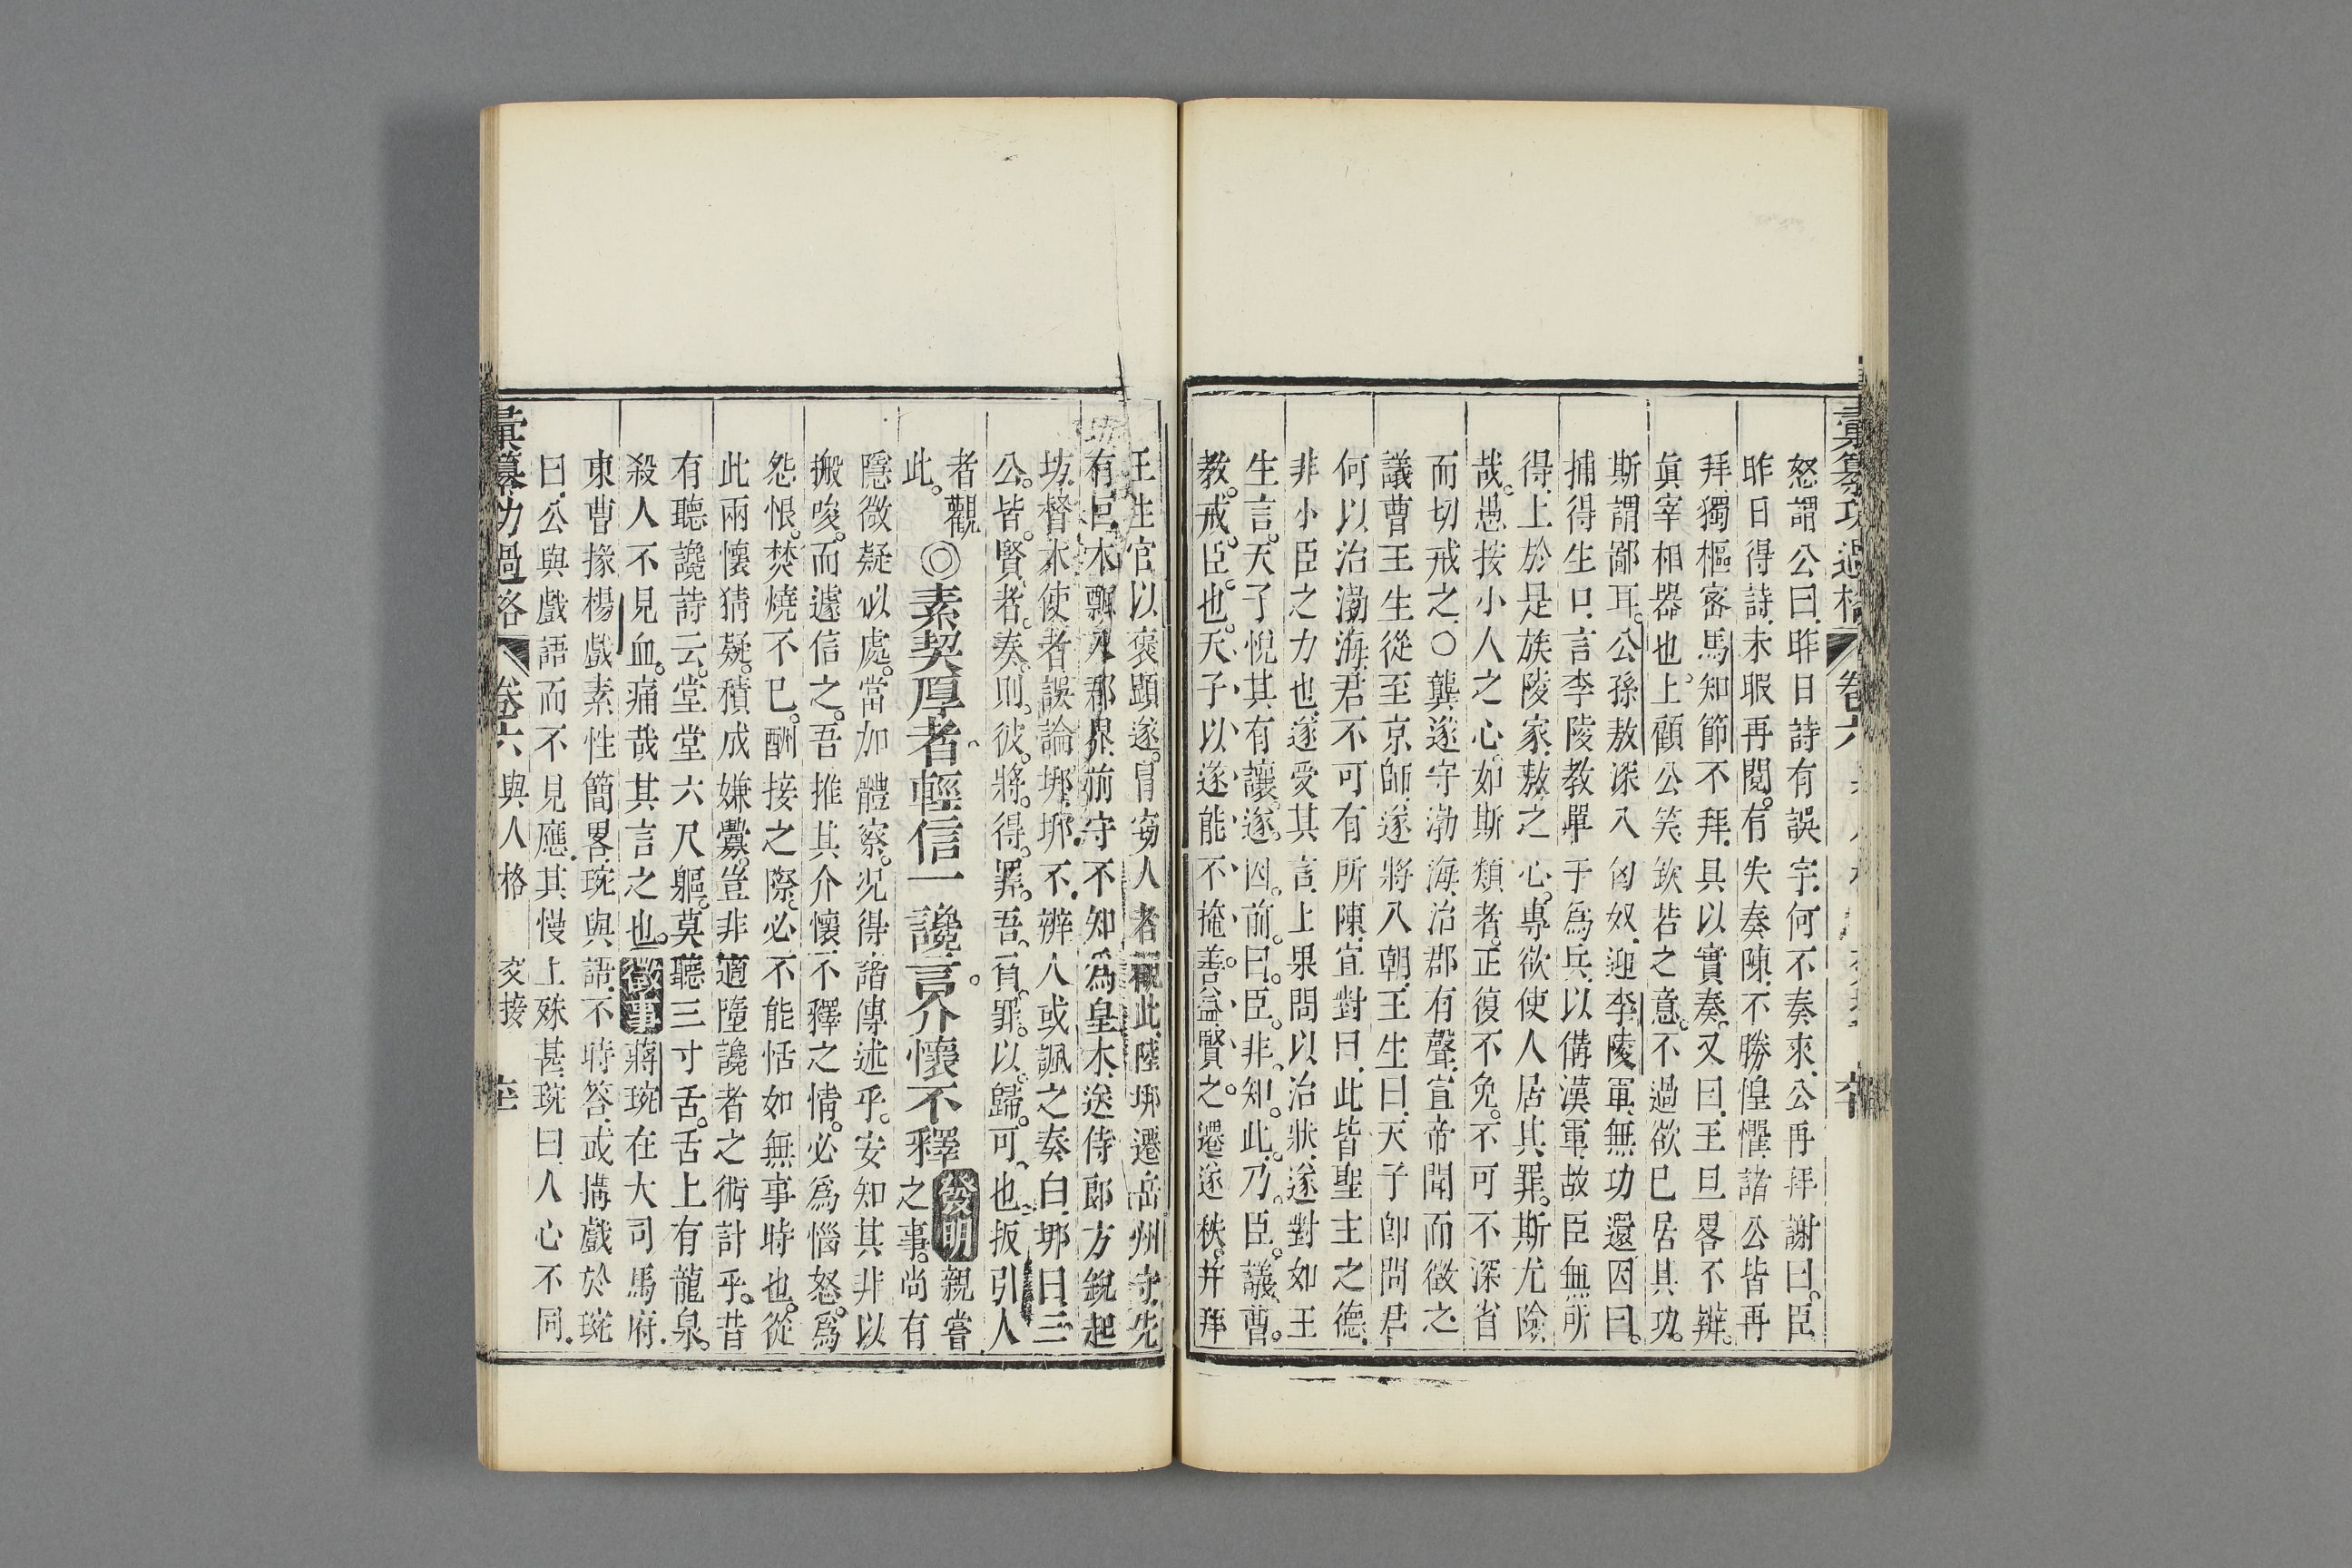 彙纂功過格 卷六
怒謂公曰昨日詩有誤字何不奏來公再拜謝曰臣
昨日得詩未暇再閱有失奏陳不勝惶懼諸公皆再
拜獨樞密馬知節不拜具以實奏又曰王旦畧不辨
眞宰相器也上顧公笑欽若之意不過欲已居其功
斯謂鄙耳公孫敖深入匈奴迎李陵軍無功還因曰
捕得生口言李陵教單于爲兵以備漢軍故臣無所
得上於是族陵家敖之心專欲使人居其罪斯尤險
哉愚按小人之心如斯類者正復不免不可不深省
而切戒之○龔遂守渤海治郡有聲宣帝聞而徵之
議曹王生從至京師遂將入朝王生曰天子卽問君
何以治渤海君不可有所陳宜對曰此皆聖主之德
非小臣之力也遂受其言上果問以治狀遂對如王
生言天子悅其有讓遂因前曰臣非知此乃臣議曹
教戒臣也天子以遂能不掩善益賢之遷遂秩幷拜
王生官以褒顯遂冒竊人者觀此陸㘭遷岳州守先
有巨木飄入郡界前守不知爲皇木送侍郎方銳起
坊督木使者誤論㘭㘭不辨人或諷之奏白㘭曰三
公皆賢者奏則彼將得罪吾有罪以歸可也扳引人
者觀此
◎素契厚者輕信一讒言介懷不釋
發明 親嘗之事尚有
隱微疑似處當加體察況得諸傳述乎安知其非以
搬唆而遽信之吾推其介懷不釋之情必爲惱怒爲
怨恨焚燒不已酬接之際必不能恬如無事時也從
此兩懷猜疑積成嫌釁豈非適墮讒者之術計乎昔
有聽讒詩云堂堂六尺軀莫聽三寸舌舌上有龍泉
殺人不見血痛哉其言之也 徵事 蔣琬在大司馬府
東曹掾楊戲素性簡畧琬與語不時答或搆戲於琬
曰公與戲語而不見應其慢上殊甚琬曰人心不同
彙纂功過格 卷六 與人格 交接